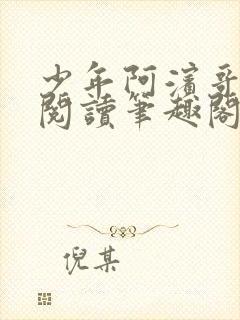 少年阿濱哥
閱讀筆趣閣
倪某